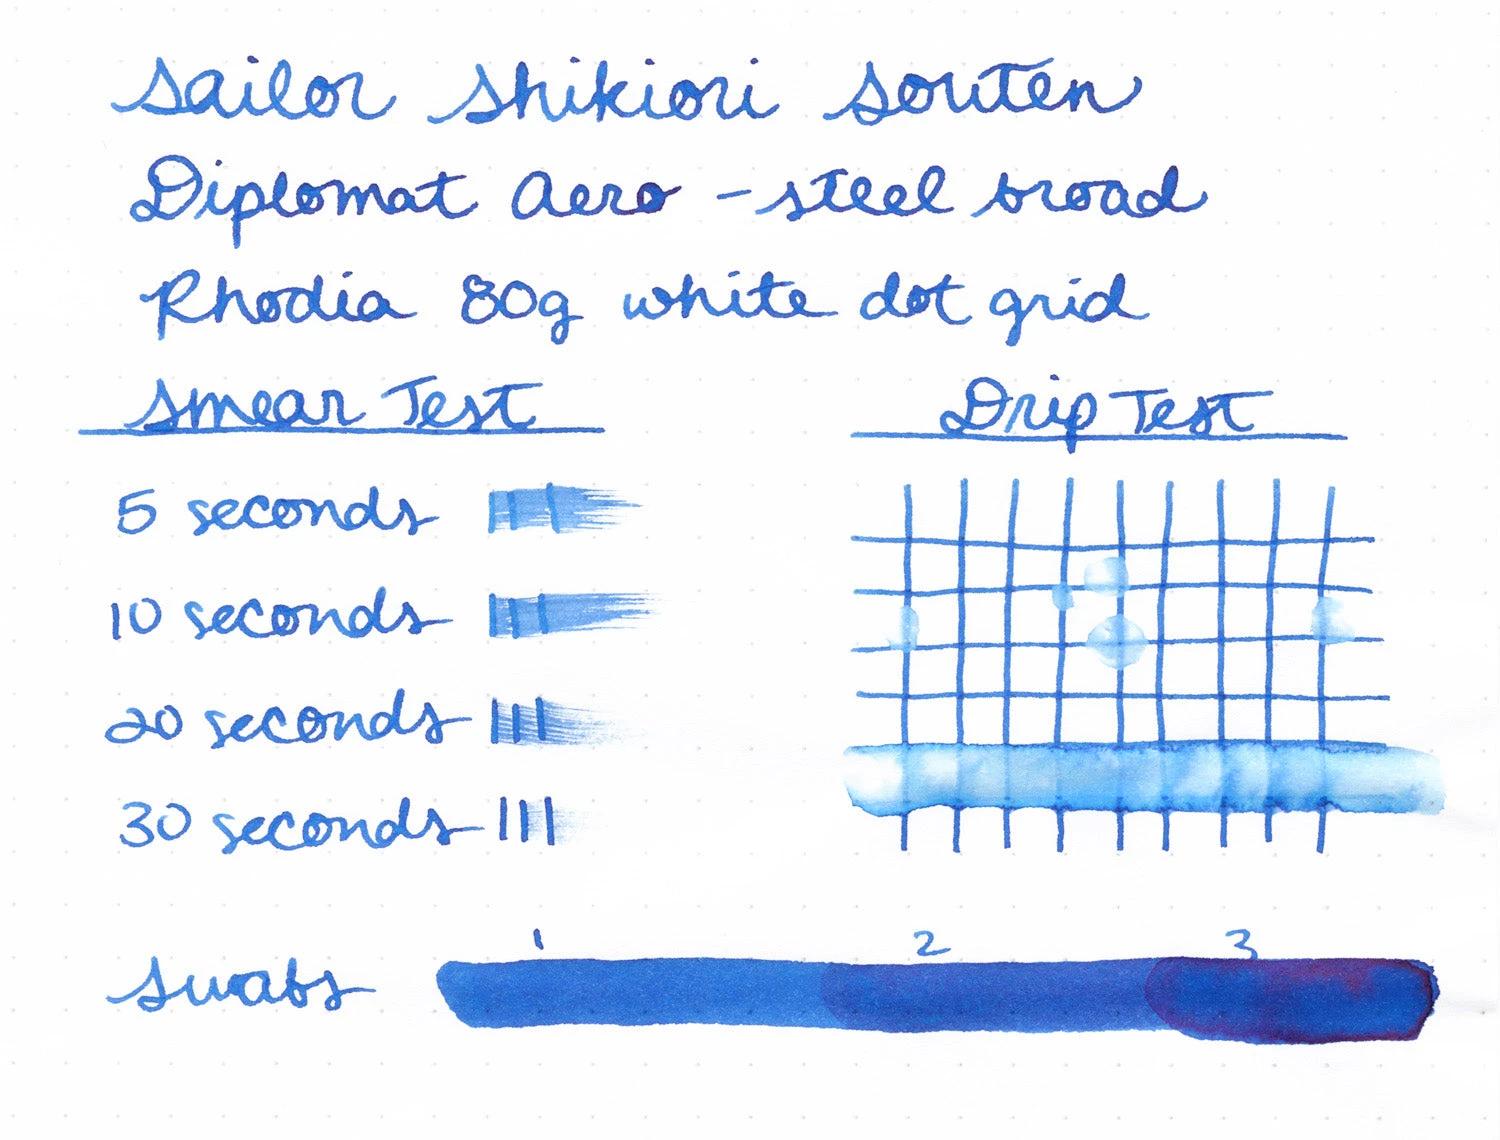 Sailor Shikiori Souten
Diplomat Aero - steel broad
Rhodia 80g white dot grid
Smear Test
5 seconds
10 seconds
20 seconds
30 seconds
Drip Test
Swabs
1 2 3